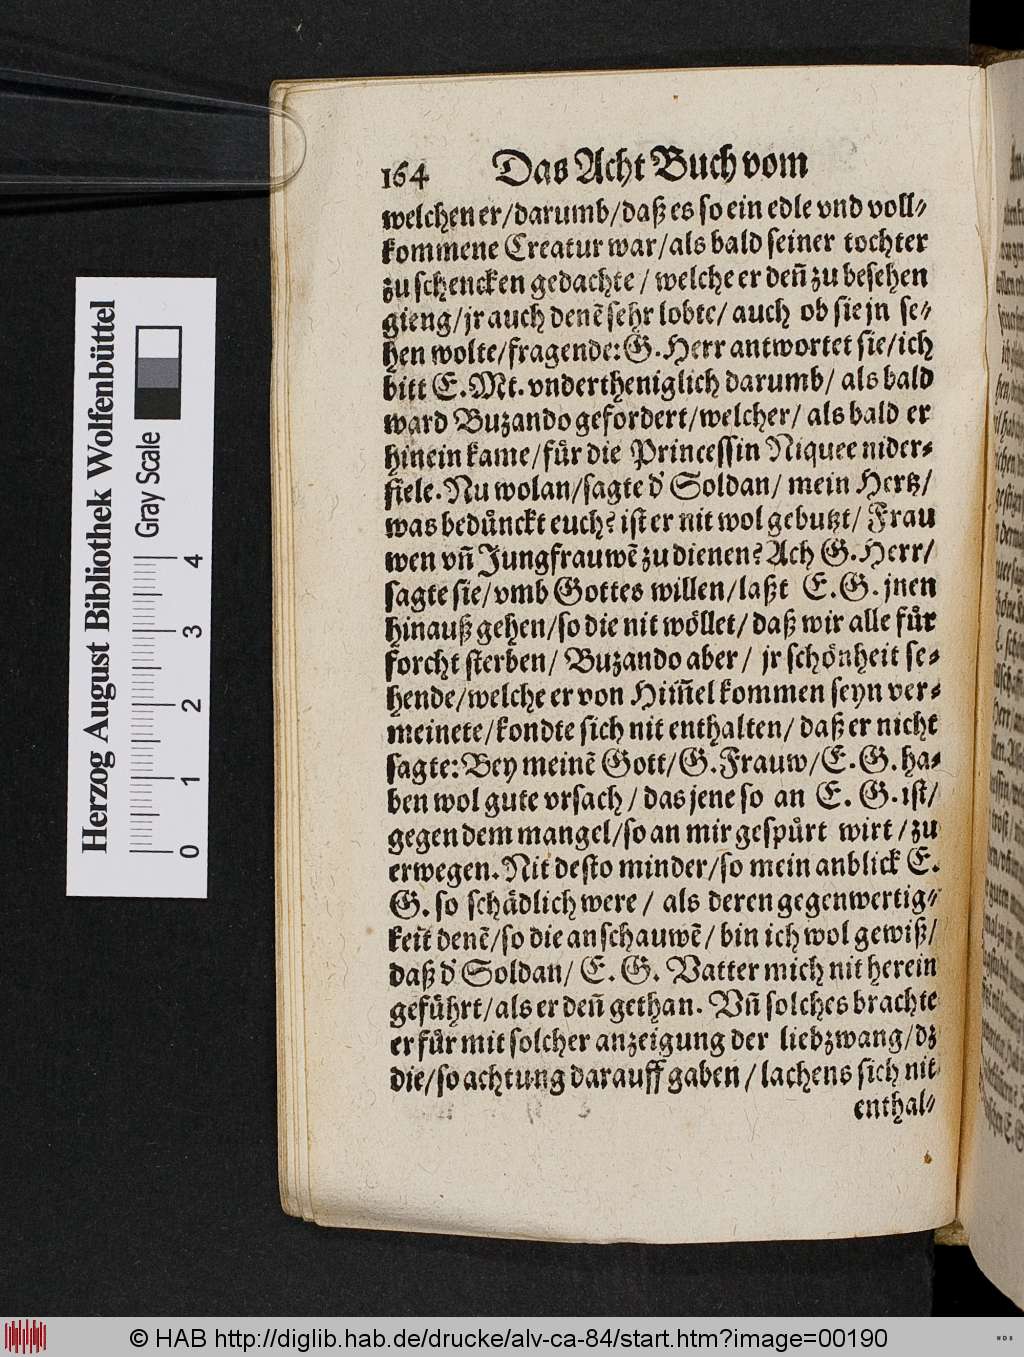 164 Das Acht Buch vom
welchen er/darumb/daß es so ein edle vnd voll⸗
kommene Creatur war/als bald seiner tochter
zu schencken gedachte/ welche er deñ zu besehen
gieng/jr auch denē sehr lobte/ auch ob sie jn se⸗
hen wolte/fragende: G. Herr antwortet sie/ich
bitt E. Mt. vndertheniglich darumb/ als bald
ward Buzando gefordert/welcher/ als bald er
hinein kame/fuͤr die Princessin Niquee nider⸗
fiele. Nu wolan/sagte d' Soldan/ mein Hertz/
was beduͤnckt euch? ist er nit wol gebutzt/ Frau
wen vñ Jungfrauwē zu dienen? Ach G. Herr/
sagte sie/vmb Gottes willen/laßt E. G. jnen
hinauß gehen/so die nit woͤllet/ daß wir alle fuͤr
forcht sterben/ Buzando aber/ jr schoͤnheit se⸗
hende/welche er von Him̃el kommen seyn ver⸗
meinete/kondte sich nit enthalten/ daß er nicht
sagte: Bey meinē Gott/G. Frauw/E. G. ha⸗
ben wol gute vrsach/ das jene so an E. G. ist/
gegen dem mangel/so an mir gespuͤrt wirt/zu
erwegen. Nit desto minder/so mein anblick E.
G. so schaͤdlich were/ als deren gegenwertig⸗
keit denē/so die anschauwē/ bin ich wol gewiß/
daß d' Soldan/ E. G. Vatter mich nit herein
gefuͤhrt/als er deñ gethan. Vñ solches brachte
er fuͤr mit solcher anzeigung der liebzwang/dz
die/so achtung darauff gaben/lachens sich nit
enthal⸗
Herzog August Bibliothek Wolfenbüttel
Gray Scale
0 1 2 3 4
© HAB http://diglib.hab.de/drucke/alv-ca-84/start.htm?image=00190
WDB